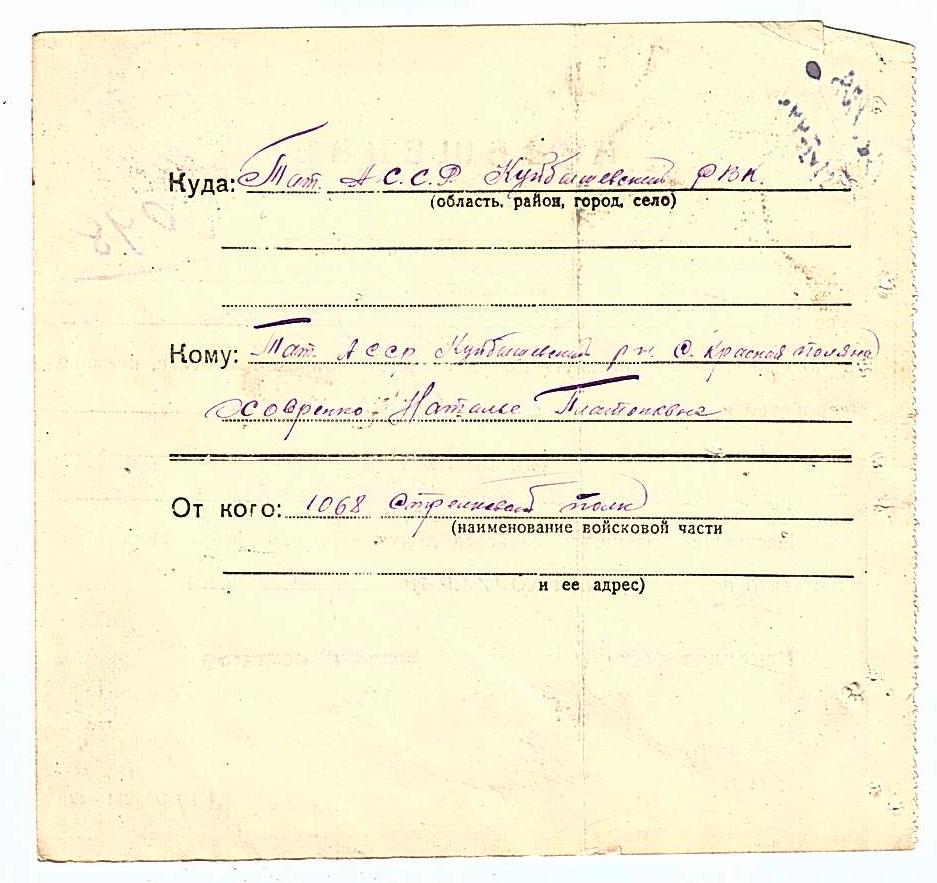 Куда: Тат. А.С.С.Р. Куйбышевский РВК.
(область, район, город, село)
Кому: Тат. АССР Куйбышевский р-н. С. Красная поляна
Ховренко Наталье Платоновна
От кого: 1068 Стрелковый полк
(наименование войсковой части
и ее адрес)